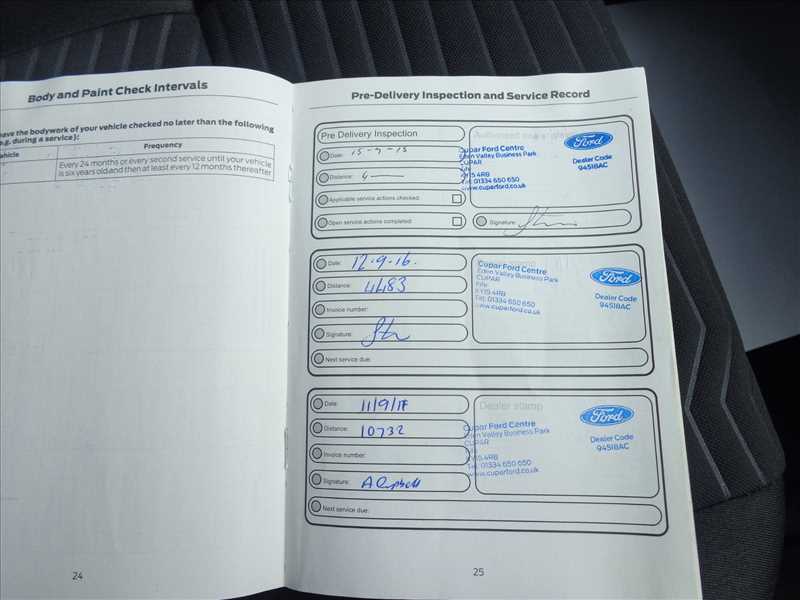 Body and Paint Check Intervals
have the bodywork of your vehicle checked no later than the following
e.g. during a service):
hicle
Frequency
Every 24 months or every second service until your vehicle
is six years old and then at least every 12 months thereafter
24
Pre-Delivery Inspection and Service Record
Pre Delivery Inspection
Date: 15-9-15
Distance: 4
Applicable service actions checked:
Open service actions completed:
Cupar Ford Centre
Eden Valley Business Park
CUPAR
Fife
KY15 4RB
Tel: 01334 650 650
www.cuparford.co.uk
Ford
Dealer Code
94518AC
Signature:
Date: 12.9.16.
Distance: 4483
Invoice number:
Signature:
Next service due:
Cupar Ford Centre
Eden Valley Business Park
CUPAR
Fife
KY15 4RB
Tel: 01334 650 650
www.cuparford.co.uk
Ford
Dealer Code
94518AC
Date: 11/9/17
Distance: 10732
Invoice number:
Signature: A Campbell
Next service due:
Dealer stamp
Cupar Ford Centre
Eden Valley Business Park
CUPAR
Fife
KY15 4RB
Tel: 01334 650 650
www.cuparford.co.uk
Ford
Dealer Code
94518AC
25